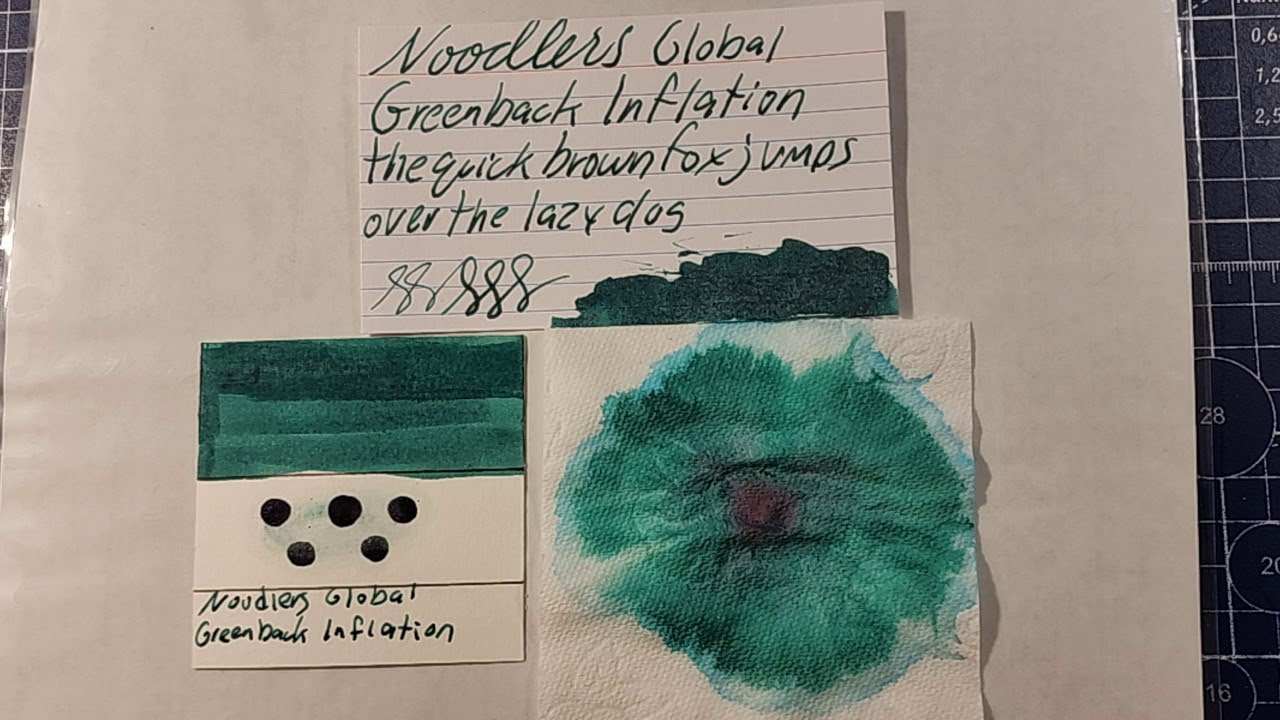 Noodlers Global
Greenback Inflation
the quick brown fox jumps
over the lazy dog
Noodlers Global
Greenback Inflation
0,6
1,2
2,5
28
20
16